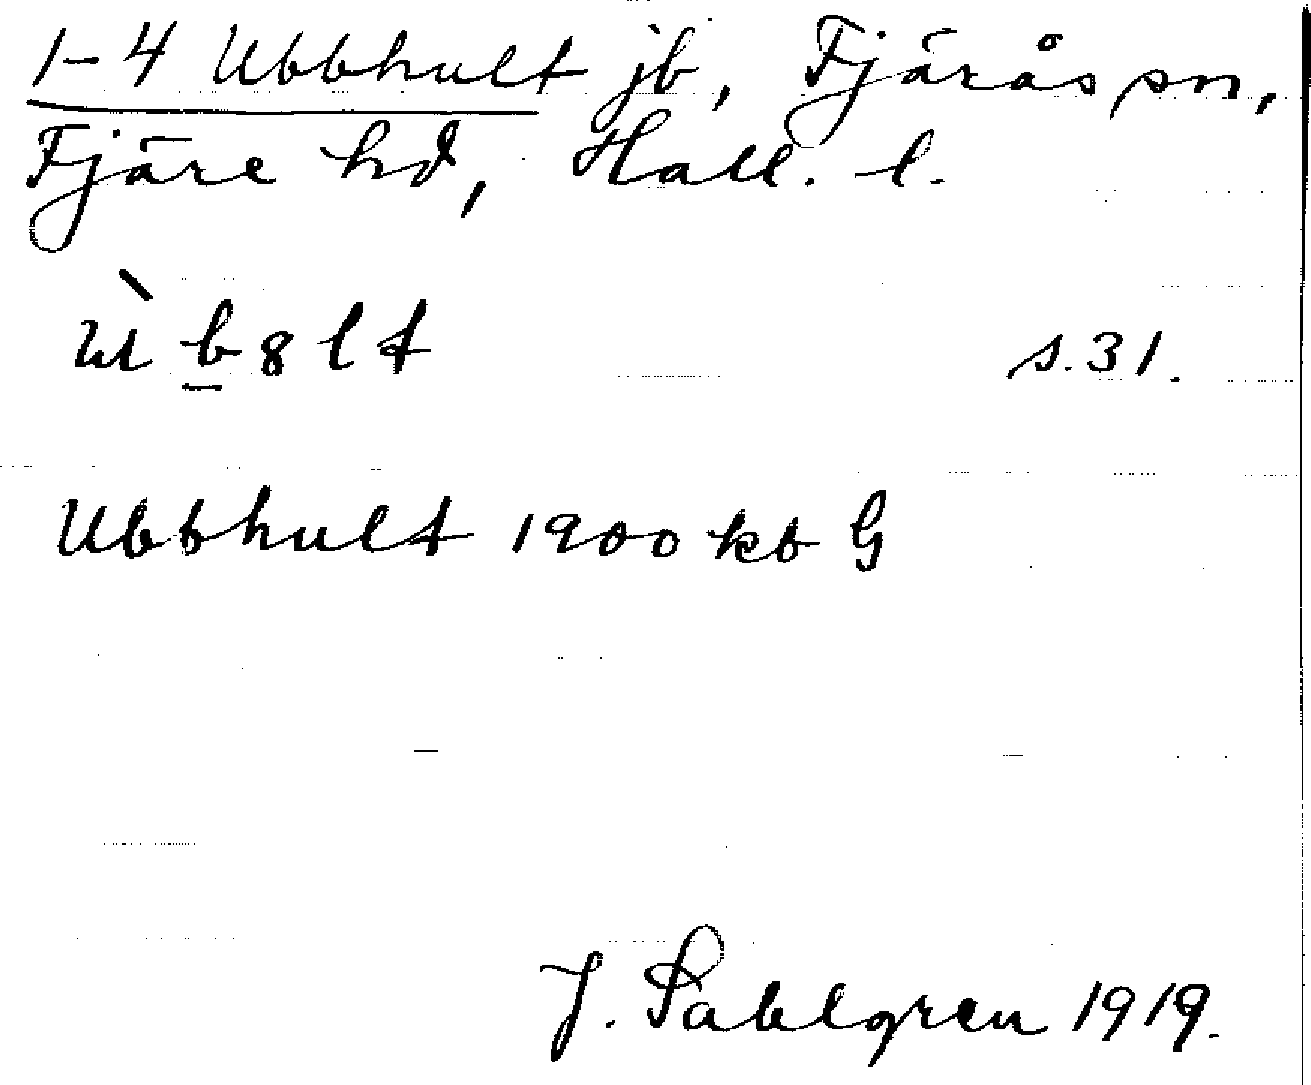 1-4 Ubbhult jb, Fjärås sn,
Fjäre hd, Hall. l.
ùb8lt s. 31.
Ubbhult 1900 kb G
J. Sahlgren 1919.